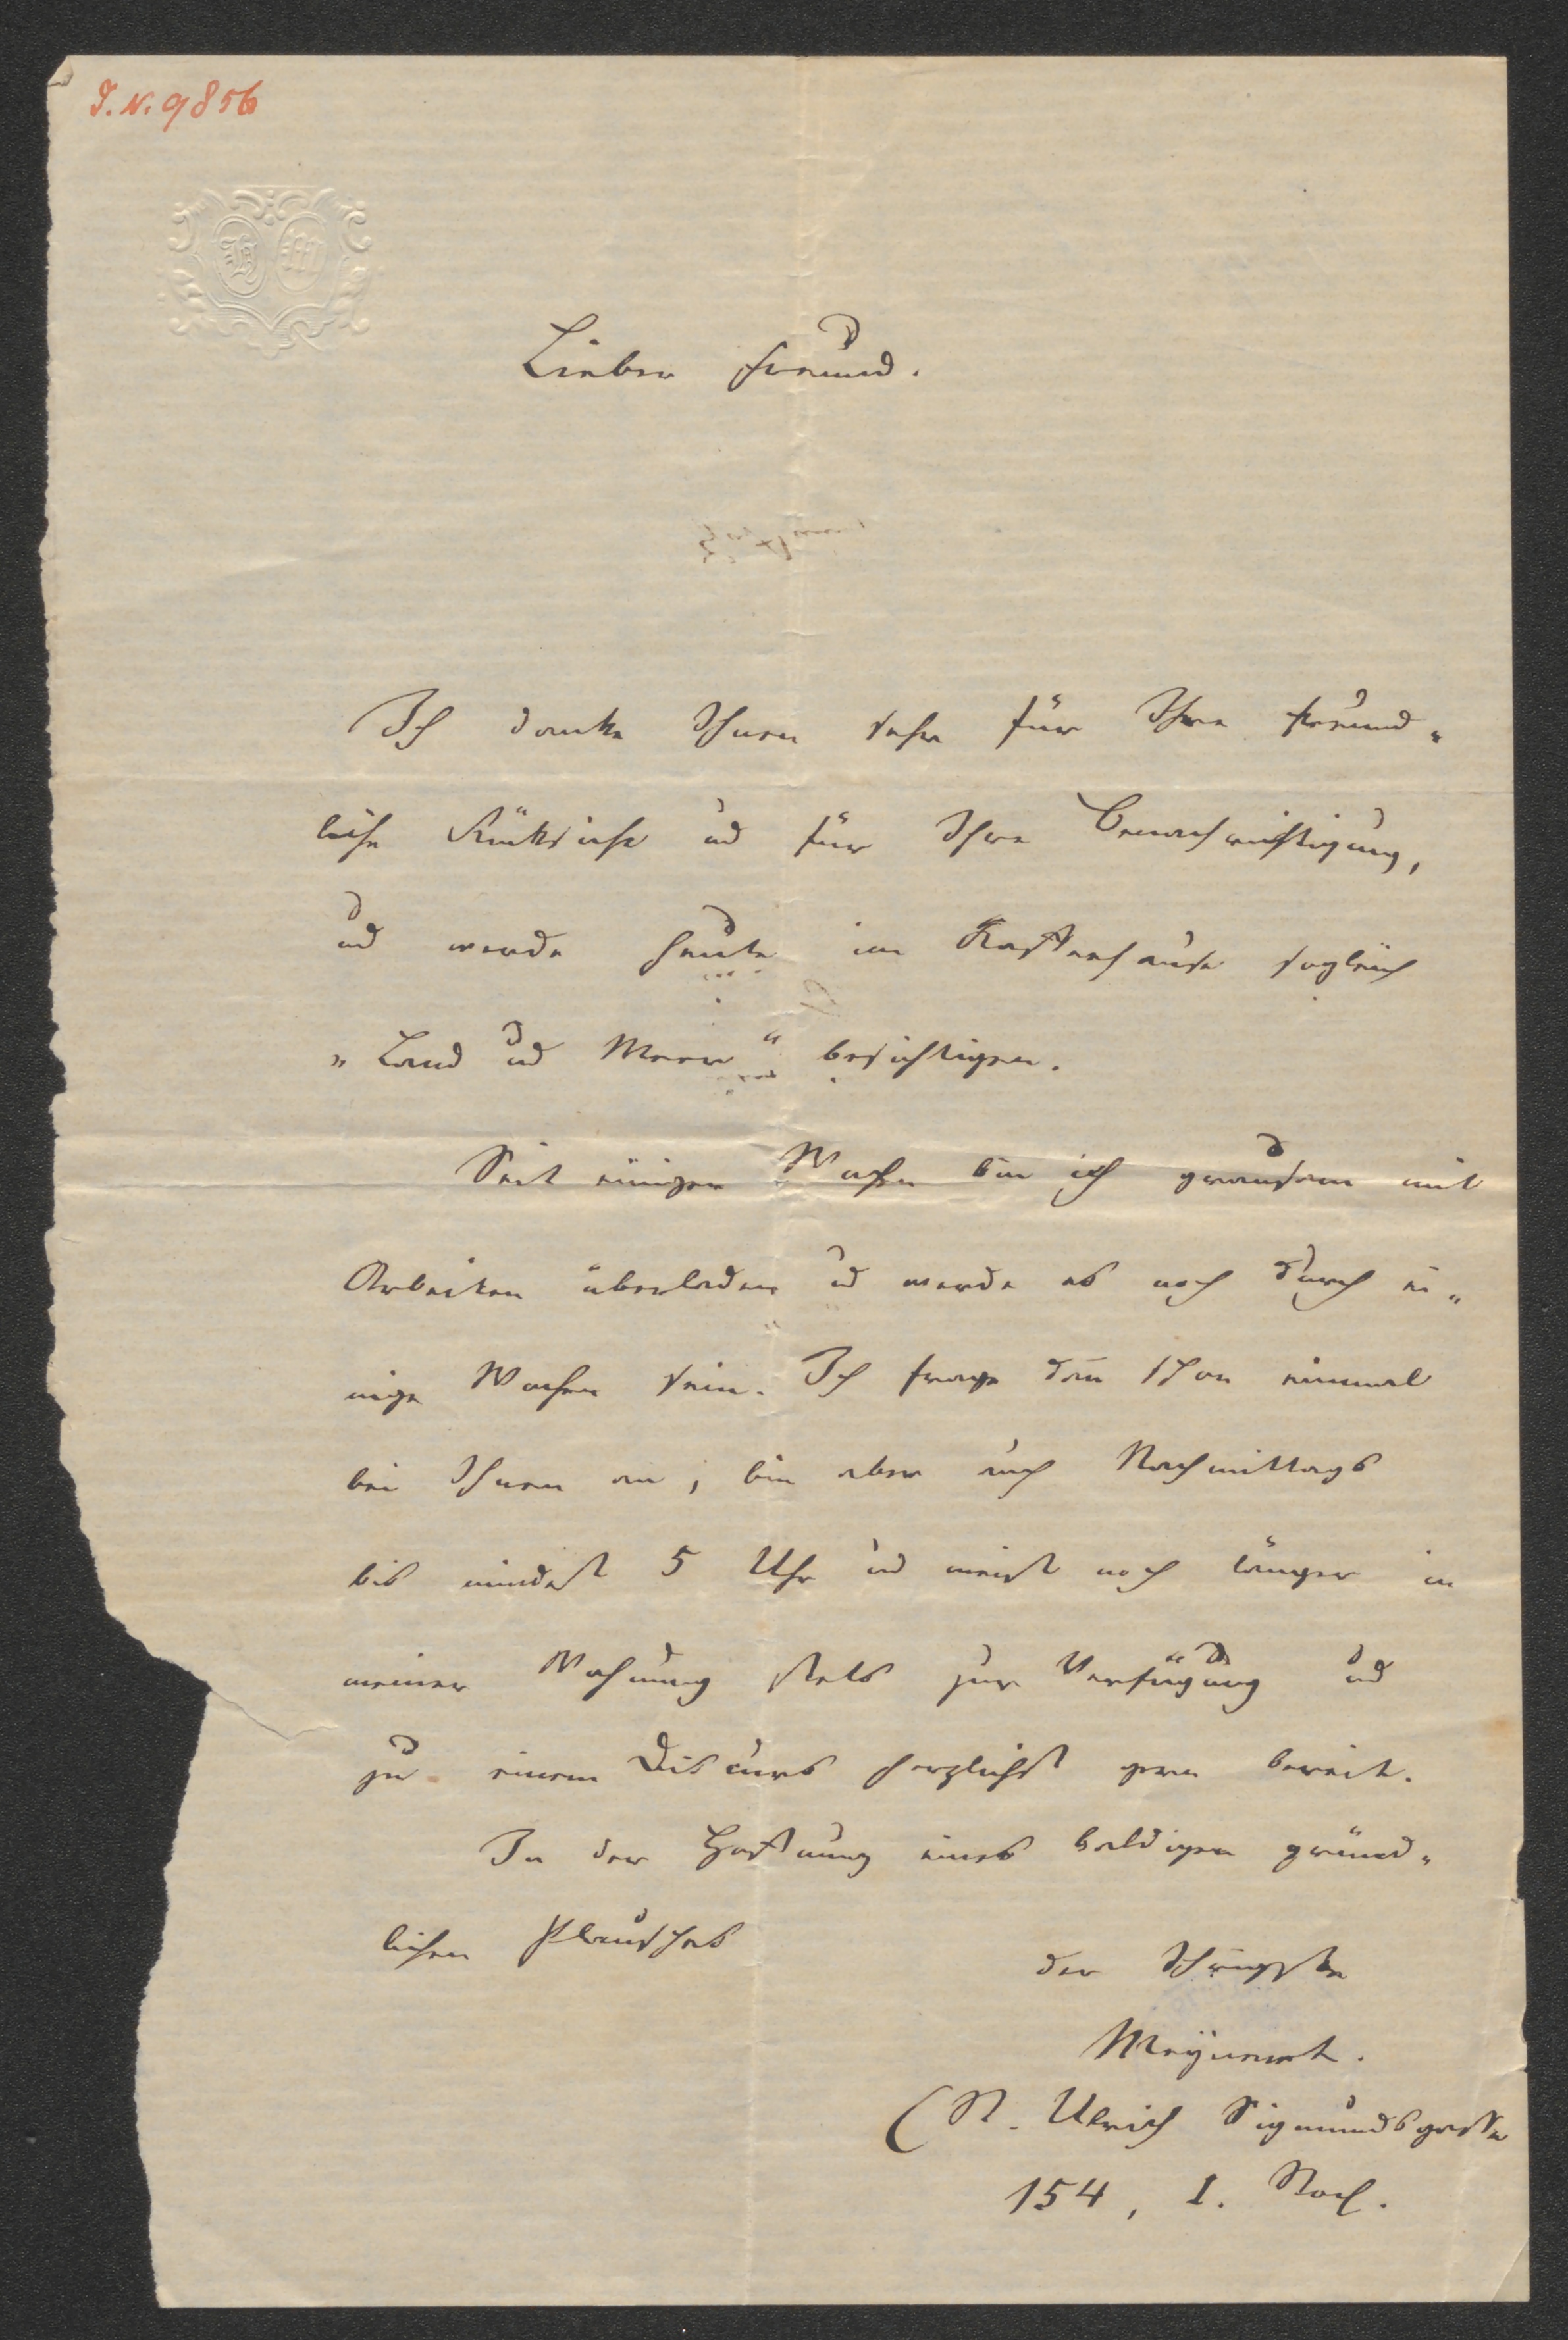 I.N. 9856
Lieber Freund.
Ich danke Ihnen sehr für Ihre freund„
liche Rüksicht ud für Ihre Benachrichtigung,
ud werde heute im Kaffeehause sogleich
„Land ud Meer“ besichtigen.
Seit einigen Wochen bin ich grausam mit
Arbeiten überladen ud werde es noch durch ei„
nige Wochen sein. Ich frage dañ schon einmal
bei Ihnen an; bin aber auch Nachmittags
bis mindest 5 Uhr ud meist noch länger in
meiner Wohnung stets zur Verfügung ud
zu einem Discurs herzlichst gern bereit.
In der Hoffnung eines baldigen gründ„
lichen Plausches
der Ihrigste
Meÿnert.
(St. Ulrich Sigmundsgasse
154, I. Stock.